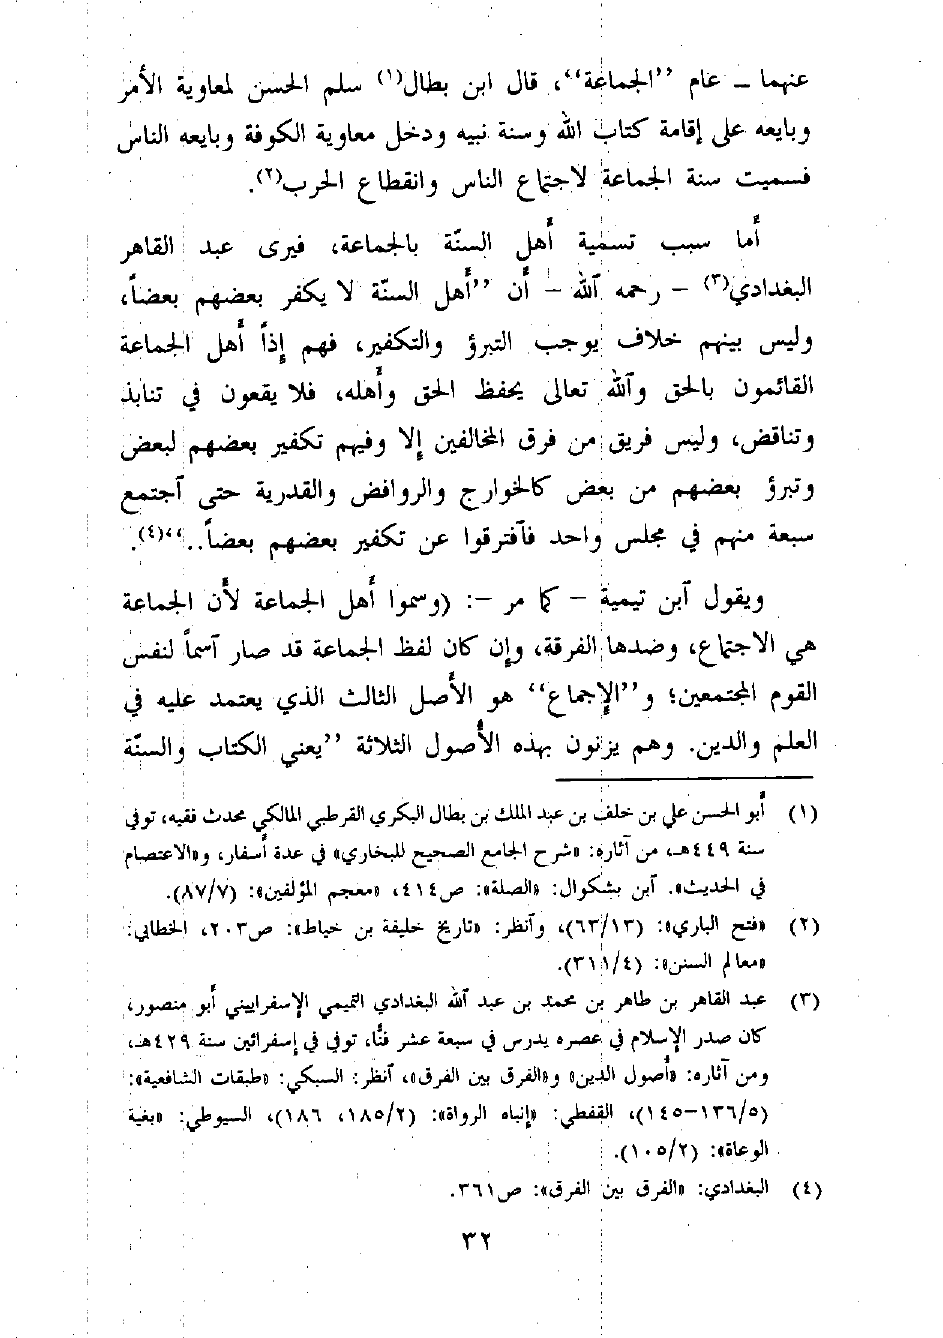 عنهما ــ عام ”الجماعة“، قال ابن بطال(١) سلم الحسن لمعاوية الأمر
وبايعه على إقامة كتاب الله وسنة نبيه ودخل معاوية الكوفة وبايعه الناس
فسميت سنة الجماعة لاجتماع الناس وانقطاع الحرب(٢).
أما سبب تسمية أهل السنّة بالجماعة، فيرى عبد القاهر
البغدادي(٣) – رحمه ٱلله – أن ”أهل السنّة لا يكفر بعضهم بعضاً،
وليس بينهم خلاف يوجب التبرؤ والتكفير، فهم إذاً أهل الجماعة
القائمون بالحق وٱلله تعالى يحفظ الحق وأهله، فلا يقعون في تنابذ
وتناقض، وليس فريق من فرق المخالفين إلا وفيهم تكفير بعضهم لبعض
وتبرؤ بعضهم من بعض كالخوارج والروافض والقدرية حتى ٱجتمع
سبعة منهم في مجلس واحد فٱفترقوا عن تكفير بعضهم بعضاً..“(٤).
ويقول ٱبن تيمية – كما مر –: (وسموا أهل الجماعة لأن الجماعة
هي الاجتماع، وضدها الفرقة، وإن كان لفظ الجماعة قد صار ٱسماً لنفس
القوم المجتمعين؛ و”الإجماع“ هو الأصل الثالث الذي يعتمد عليه في
العلم والدين. وهم يزنون بهذه الأصول الثلاثة ”يعني الكتاب والسنّة
(١) أبو الحسن علي بن خلف بن عبد الملك بن بطال البكري القرطبي المالكي محدث فقيه، توفي
سنة ٤٤٩هـ، من آثاره: «شرح الجامع الصحيح للبخاري» في عدة أسفار، و«الاعتصام
في الحديث». ٱبن بشكوال: «الصلة»: ص٤١٤، «معجم المؤلفين»: (٨٧/٧).
(٢) «فتح الباري»: (٦٣/١٣)، وٱنظر: «تاريخ خليفة بن خياط»: ص٢٠٣، الخطابي:
«معالم السنن»: (٣١١/٤).
(٣) عبد القاهر بن طاهر بن محمد بن عبد ٱلله البغدادي التميمي الإسفراييني أبو منصور،
كان صدر الإسلام في عصره يدرس في سبعة عشر فنًّا، توفي في إسفرائين سنة ٤٢٩هـ،
ومن آثاره: «أصول الدين» و«الفرق بين الفرق»، ٱنظر: السبكي: «طبقات الشافعية»:
(١٣٦/٥–١٤٥)، القفطي: «إنباه الرواة»: (١٨٥/٢، ١٨٦)، السيوطي: «بغية
الوعاة»: (١٠٥/٢).
(٤) البغدادي: «الفرق بين الفرق»: ص٣٦١.
٣٢